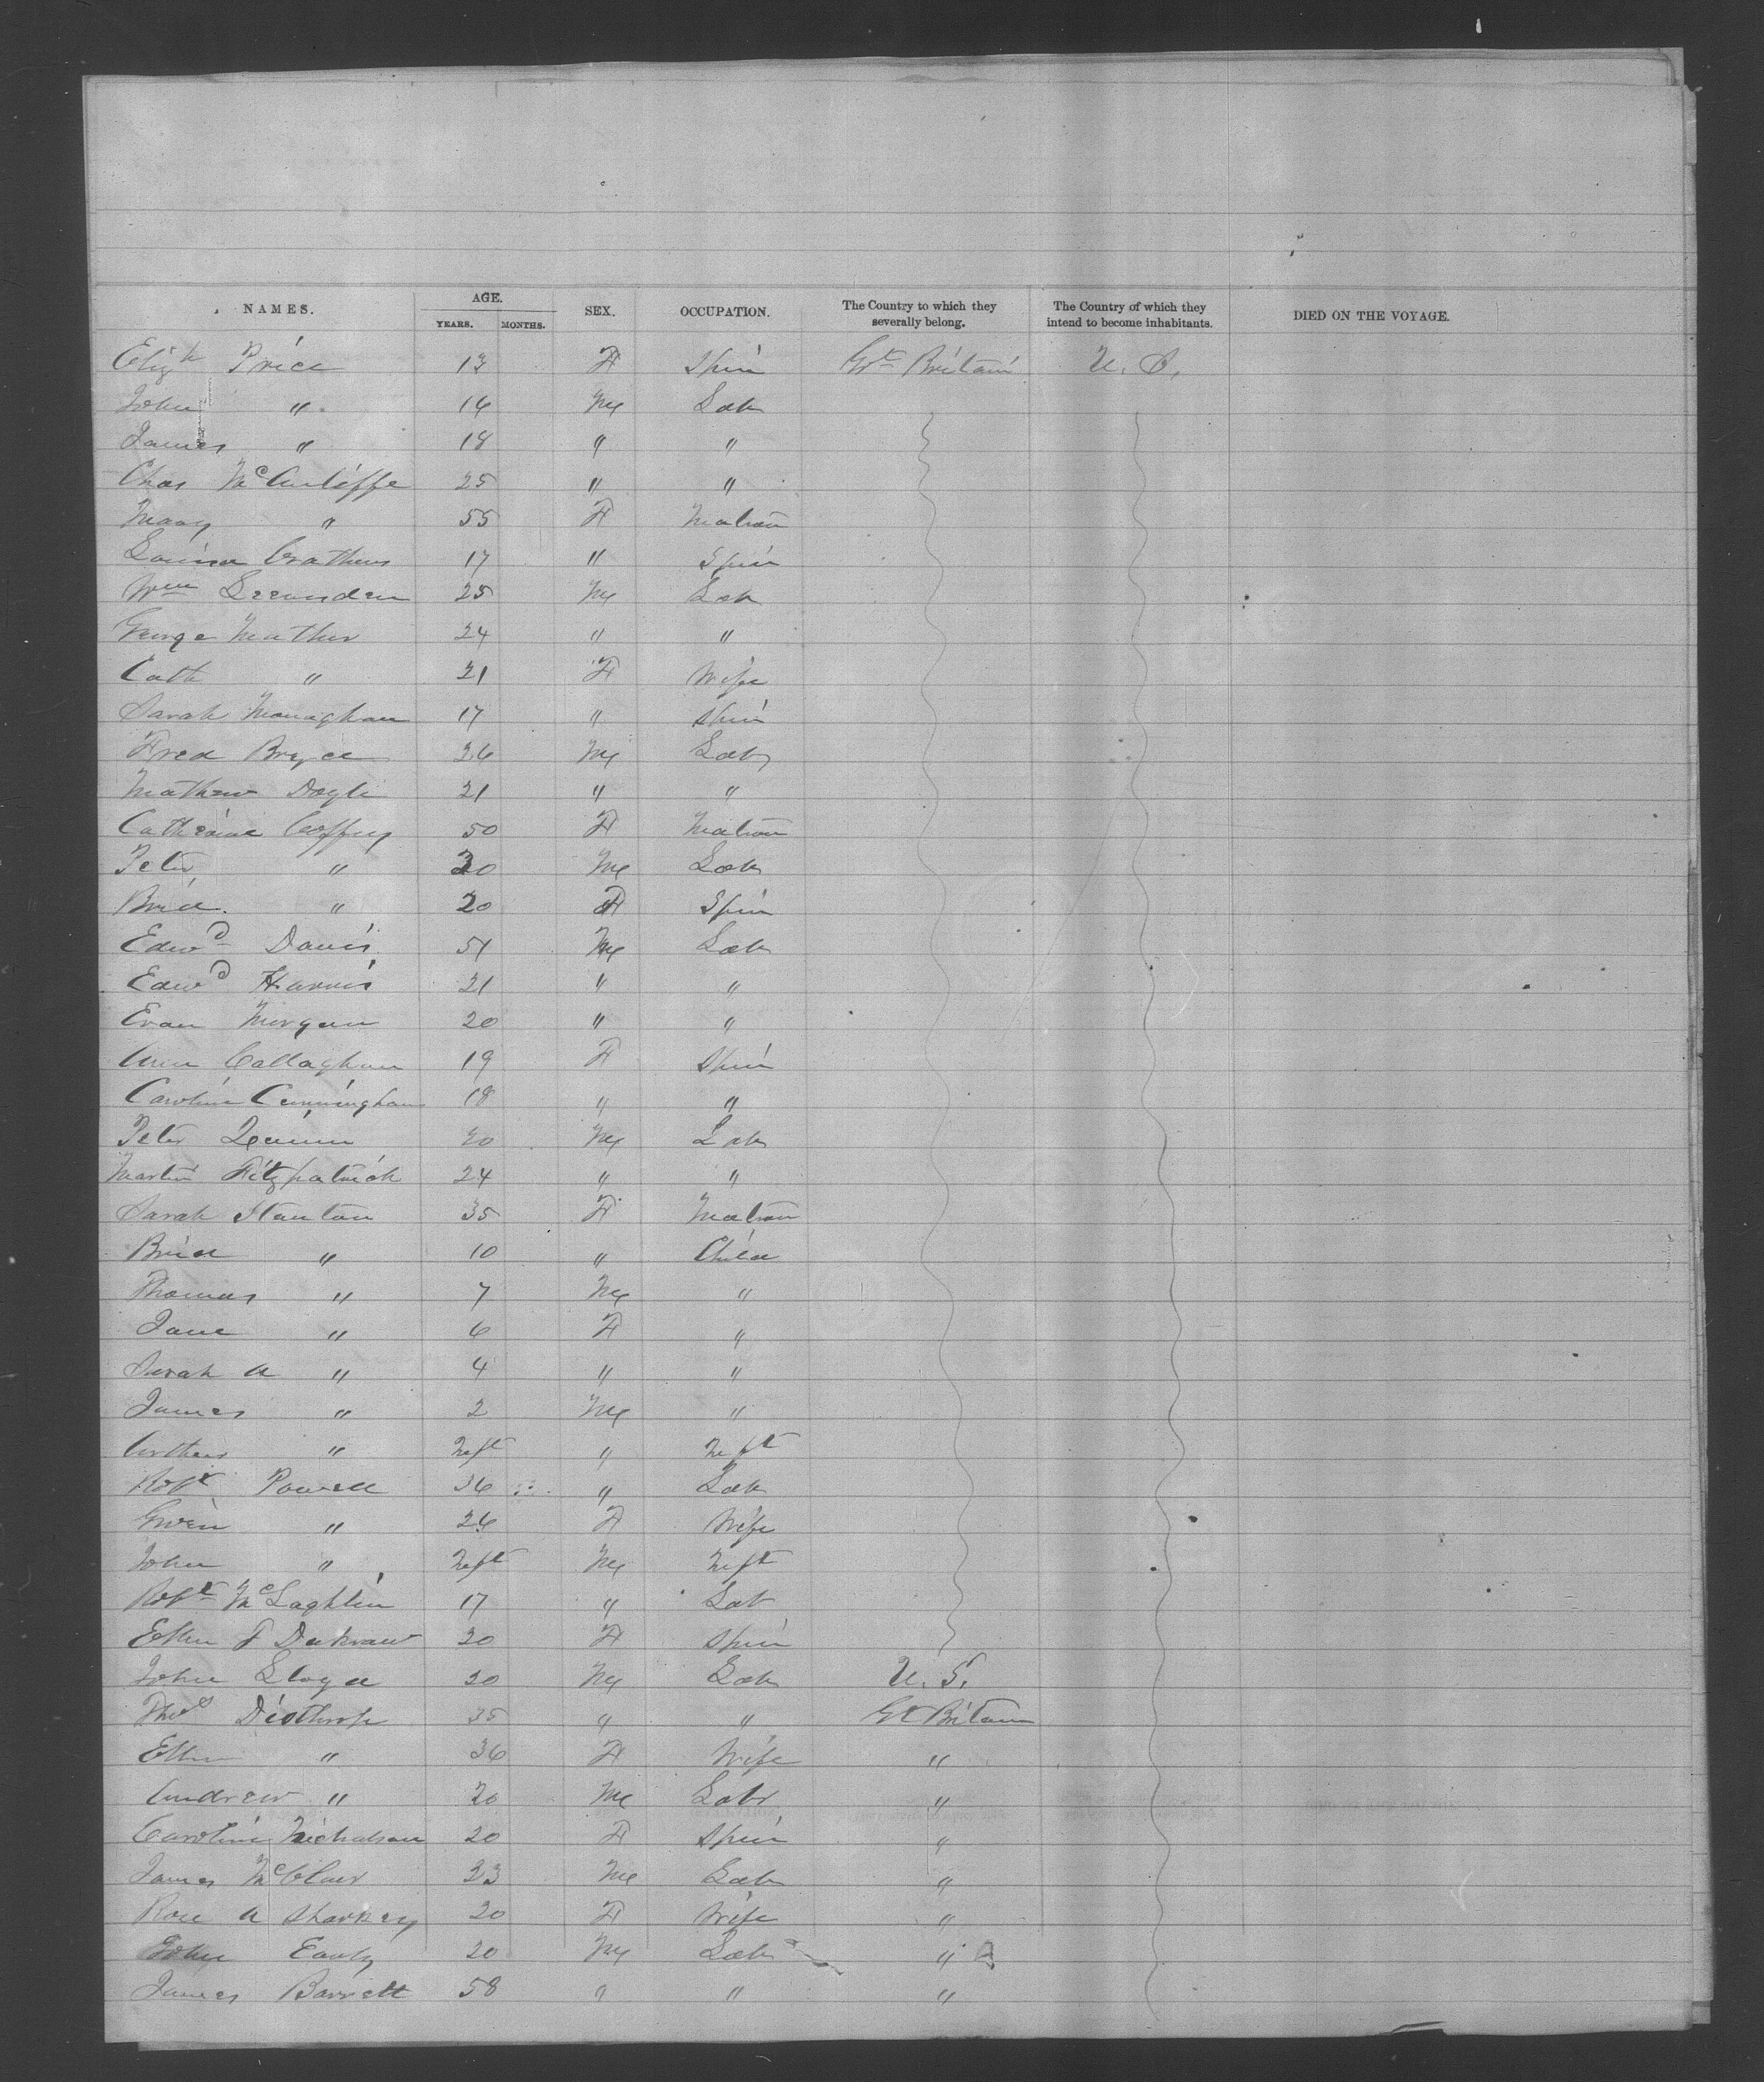 NAMES. AGE. SEX. OCCUPATION. The Country to which they severally belong. The Country of which they intend to become inhabitants. DIED ON THE VOYAGE.
YEARS. MONTHS.
Elizh Price 13 F Spin Grt Britain U. S.
John " 16 M Lab
James " 18 " "
Chas McAuliffe 25 " "
Mary " 55 F Matron
Louisa Crathers 17 " Spin
Wm 25 M Lab
George Mather 24 " "
Cath " 21 F Wife
Sarah Monaghan 17 " Spin
Fred Bryce 26 M Lab
Mathew Doyle 21 " "
Catherine Coffey 50 F Matron
Peter " 30 M Lab
Brid. " 20 F Spin
Edwd Davis 51 M Lab
Edwd Harris 21 " "
Evan Morgan 20 " "
Ann Callaghan 19 F Spin
Caroline Cunningham 18 " "
Peter Quinn 20 M Lab
Martin Fitzpatrick 24 " "
Sarah Stanton 35 F Matron
Brid " 10 " Child
Thomas " 7 M "
Jane " 6 F "
Sarah A " 4 " "
James " 2 M "
Arthur " Inft " Inft
Robt Powell 36 " Lab
Gwen " 26 F Wife
John " Inft M Inft
Robt McLaghlin 17 " Lab
Ellen F 20 F Spin
John Lloyd 20 M Lab U. S.
Thos Disthrop 35 " " Gt Britain
Ellen " 36 F Wife "
Andrew " 20 M Labr "
Caroline Nicholson 20 F Spin "
James McClair 23 M Lab "
Rose A Sharkey 20 F Wife "
John Early 20 M Lab "
James Barrett 58 " " "